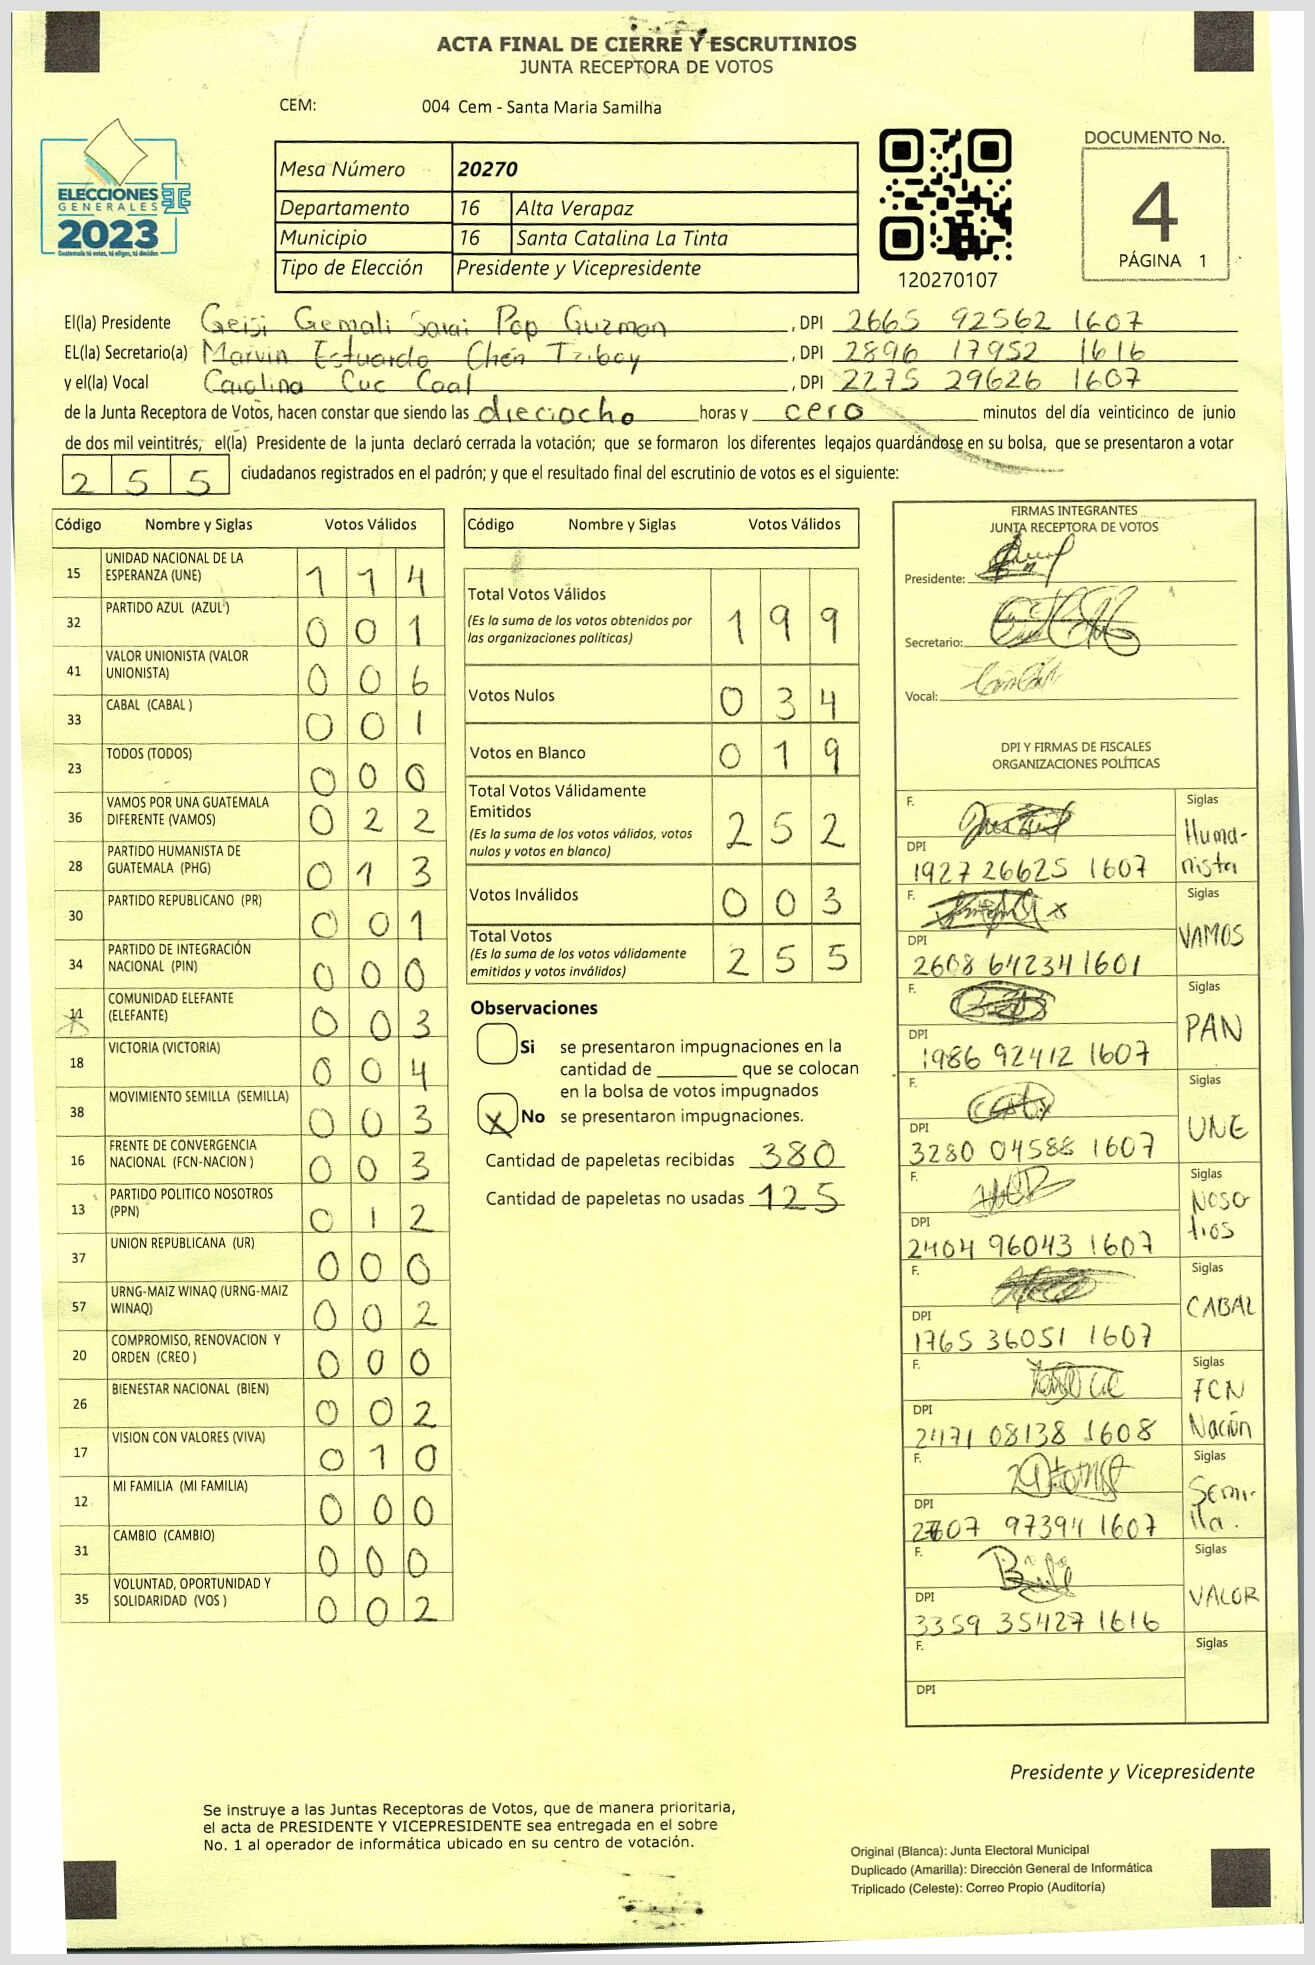 ACTA FINAL DE CIERRE Y ESCRUTINIOS
JUNTA RECEPTORA DE VOTOS
CEM: 004 Cem - Santa Maria Samilha
ELECCIONES
GENERALES
2023
Guatemala tú votas, tú eliges, tú decides
Mesa Número 20270
Departamento 16 Alta Verapaz
Municipio 16 Santa Catalina La Tinta
Tipo de Elección Presidente y Vicepresidente
120270107
DOCUMENTO No.
4
PÁGINA 1
El(la) Presidente Geisi Gemali Sarai Pop Guzman, DPI 2665 92562 1607
EL(la) Secretario(a) Marvin Estuardo Chén Tziboy, DPI 2896 17952 1616
y el(la) Vocal Carolina Cuc Caal, DPI 2275 29626 1607
de la Junta Receptora de Votos, hacen constar que siendo las dieciocho horas y cero minutos del día veinticinco de junio
de dos mil veintitrés, el(la) Presidente de la junta declaró cerrada la votación; que se formaron los diferentes legajos quardándose en su bolsa, que se presentaron a votar
255 ciudadanos registrados en el padrón; y que el resultado final del escrutinio de votos es el siguiente:
Código Nombre y Siglas Votos Válidos
15 UNIDAD NACIONAL DE LA ESPERANZA (UNE) 114
32 PARTIDO AZUL (AZUL) 001
41 VALOR UNIONISTA (VALOR UNIONISTA) 006
33 CABAL (CABAL ) 001
23 TODOS (TODOS) 000
36 VAMOS POR UNA GUATEMALA DIFERENTE (VAMOS) 022
28 PARTIDO HUMANISTA DE GUATEMALA (PHG) 013
30 PARTIDO REPUBLICANO (PR) 001
34 PARTIDO DE INTEGRACIÓN NACIONAL (PIN) 000
11 COMUNIDAD ELEFANTE (ELEFANTE) 003
18 VICTORIA (VICTORIA) 004
38 MOVIMIENTO SEMILLA (SEMILLA) 003
16 FRENTE DE CONVERGENCIA NACIONAL (FCN-NACION ) 003
13 PARTIDO POLITICO NOSOTROS (PPN) 012
37 UNION REPUBLICANA (UR) 000
57 URNG-MAIZ WINAQ (URNG-MAIZ WINAQ) 002
20 COMPROMISO, RENOVACION Y ORDEN (CREO ) 000
26 BIENESTAR NACIONAL (BIEN) 002
17 VISION CON VALORES (VIVA) 010
12 MI FAMILIA (MI FAMILIA) 000
31 CAMBIO (CAMBIO) 000
35 VOLUNTAD, OPORTUNIDAD Y SOLIDARIDAD (VOS ) 002
Código Nombre y Siglas Votos Válidos
Total Votos Válidos 199
(Es la suma de los votos obtenidos por
las organizaciones políticas)
Votos Nulos 034
Votos en Blanco 019
Total Votos Válidamente
Emitidos 252
(Es la suma de los votos válidos, votos
nulos y votos en blanco)
Votos Inválidos 003
Total Votos 255
(Es la suma de los votos válidamente
emitidos y votos inválidos)
Observaciones
Si se presentaron impugnaciones en la
cantidad de ________ que se colocan
en la bolsa de votos impugnados
X No se presentaron impugnaciones.
Cantidad de papeletas recibidas 380
Cantidad de papeletas no usadas 125
FIRMAS INTEGRANTES
JUNTA RECEPTORA DE VOTOS
Presidente:
Secretario:
Vocal:
DPI Y FIRMAS DE FISCALES
ORGANIZACIONES POLÍTICAS
F. Siglas Humanista
DPI 1927 26625 1607
F. Siglas VAMOS
DPI 2608 64234 1601
F. Siglas PAN
DPI 1986 92412 1607
F. Siglas UNE
DPI 3280 04588 1607
F. Siglas Nosotros
DPI 2404 96043 1607
F. Siglas CABAL
DPI 1765 36051 1607
F. Siglas FCN Nación
DPI 2471 08138 1608
F. Siglas Semi-lla.
DPI 2607 97394 1607
F. Siglas VALOR
DPI 3359 35427 1616
F. Siglas
DPI
Presidente y Vicepresidente
Se instruye a las Juntas Receptoras de Votos, que de manera prioritaria,
el acta de PRESIDENTE Y VICEPRESIDENTE sea entregada en el sobre
No. 1 al operador de informática ubicado en su centro de votación.
Original (Blanca): Junta Electoral Municipal
Duplicado (Amarilla): Dirección General de Informática
Triplicado (Celeste): Correo Propio (Auditoría)